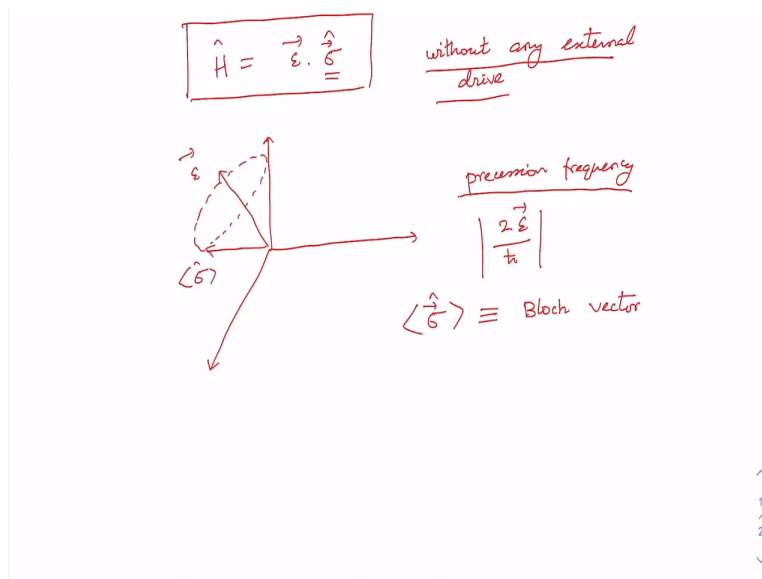 Ĥ = ε⃗ · σ⃗̂
without any external
drive
ε⃗
precession frequency
|2ε⃗/ħ|
⟨σ̂⟩
⟨σ⃗̂⟩ ≡ Bloch vector
1
2